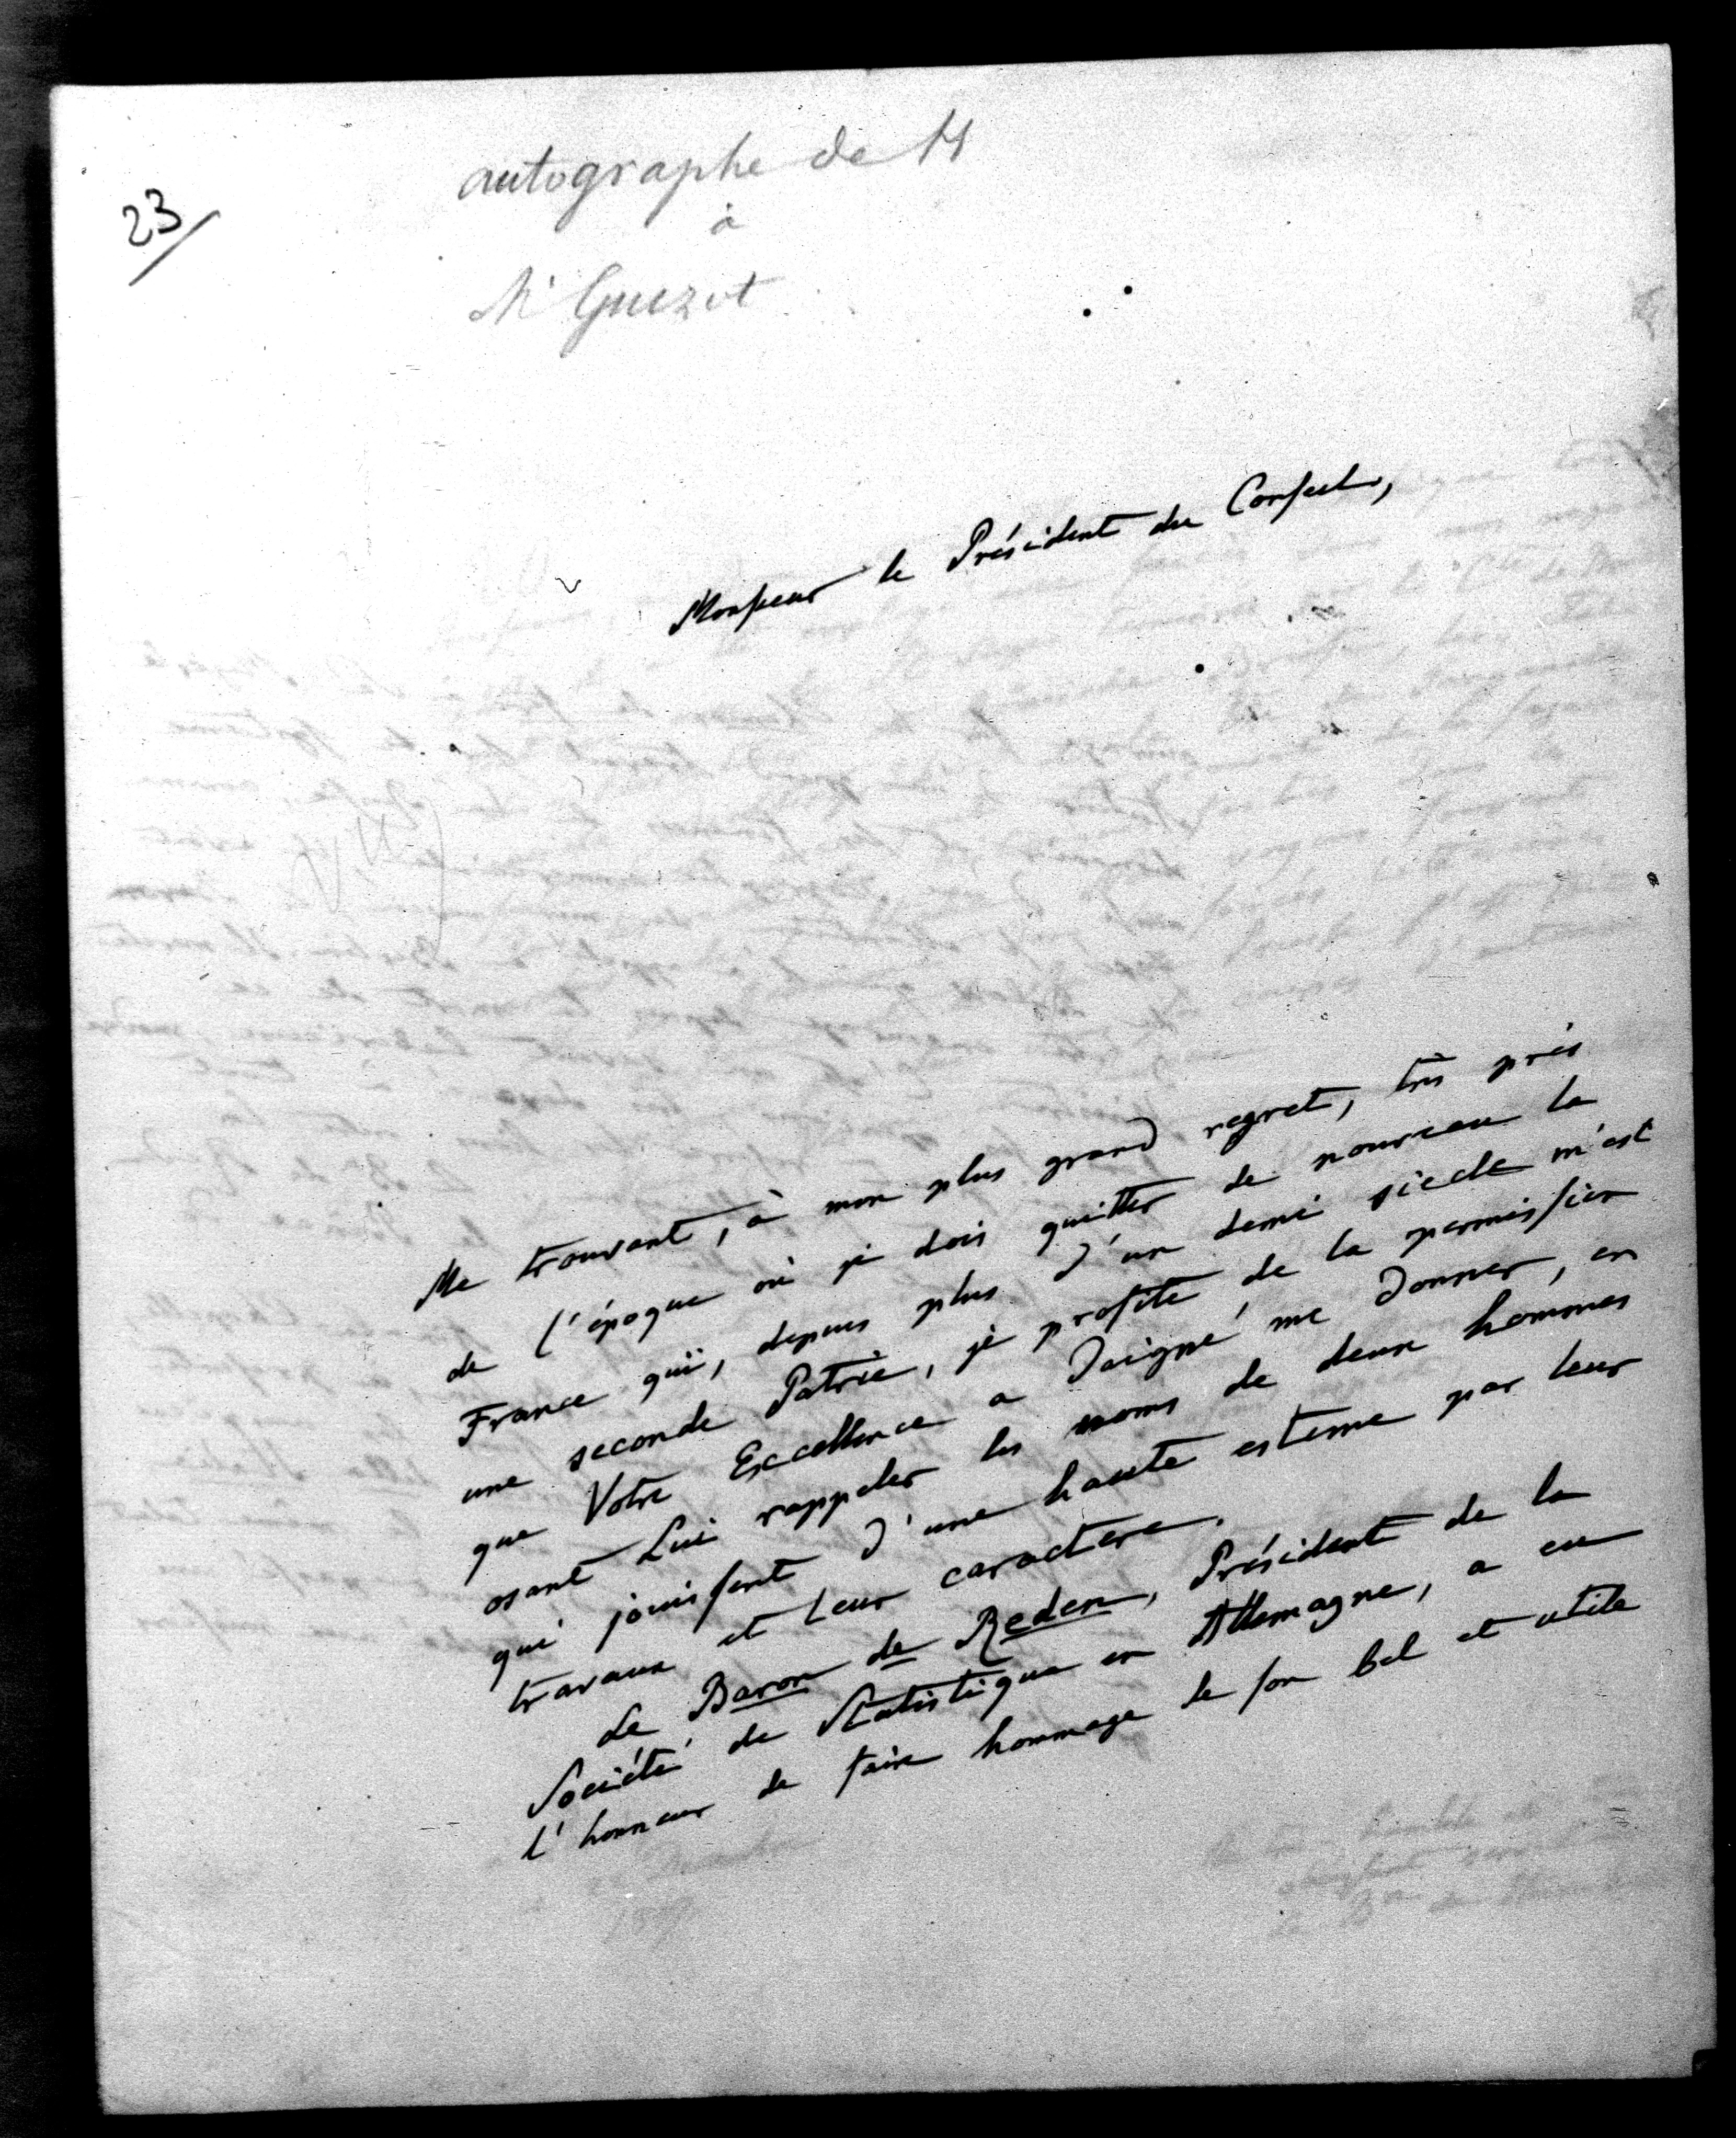 23/
autographe de H
à
Mr Guizot
Monsieur le Président du Conseil,
Me trouvant, à mon plus grand regret, très près
de l'époque où je dois quitter de nouveau la
France qui, depuis plus d'un demi siècle m'est
une seconde Patrie, je profite de la permission
que Votre Excellence a daigné me donner, en
osant Lui rappeler les noms de deux hommes
qui jouissent d'une haute estime par leur
travaux et leur caractere.
Le Baron de Reden, Président de la
Société de Statistique en Allemagne, a eu
l'honneur de faire hommage de son bel et utile